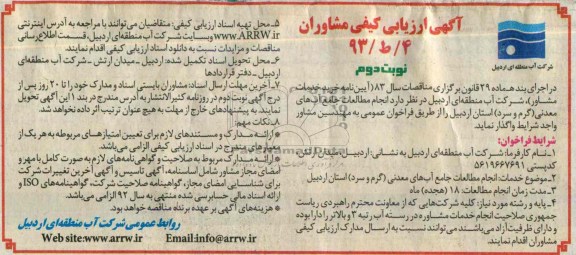 آگهی ارزیابی کیفی مشاوران
۹۳/ط/۴
نوبت دوم
شرکت آب منطقه ای اردبیل
در اجرای بند ه ماده ۲۹ قانون برگزاری مناقصات سال ۸۳ ( آیین نامه خرید خدمات
مشاور)، شرکت آب منطقه‌ای اردبیل در نظر دارد انجام مطالعات جامع آب‌های
معدنی (گرم و سرد) استان اردبیل را از طریق فراخوان عمومی به مهندسین مشاور
واجد شرایط واگذار نماید.
شرایط فراخوان:
۱ـ نام کارفرما: شرکت آب منطقه‌ای اردبیل به نشانی: اردبیل ـ میدان ارتش
کدپستی ۵۶۱۹۶۶۷۶۹۱
۲ـ موضوع خدمات: انجام مطالعات جامع آب‌های معدنی (گرم و سرد) استان اردبیل
۳ـ مدت زمان انجام مطالعات: ۱۸ (هجده) ماه
۴ـ پایه و رشته مورد نیاز: کلیه شرکت‌هایی که از معاونت محترم راهبردی ریاست
جمهوری صلاحیت انجام خدمات مشاوره در رسته آب رتبه ۳ و بالاتر را دارا بوده
و دارای ظرفیت آزاد می‌باشند می‌توانند نسبت به ارسال مدارک ارزیابی کیفی
مشاوران اقدام نمایند.
۵ـ محل تهیه اسناد ارزیابی کیفی: متقاضیان می‌توانند با مراجعه به آدرس اینترنتی
www.ARRW.ir وبسایت شرکت آب منطقه‌ای اردبیل، قسمت اطلاع‌رسانی
مناقصات و مزایدات نسبت به دانلود اسناد ارزیابی کیفی اقدام نمایند.
۶ـ محل تحویل اسناد تکمیل شده: اردبیل ـ میدان ارتش ـ شرکت آب منطقه‌ای
اردبیل ـ دفتر قراردادها
۷ـ آخرین مهلت ارسال اسناد: مشاوران بایستی اسناد و مدارک خود را تا ۲۰ روز پس از
درج آگهی نوبت دوم در روزنامه کثیرالانتشار به آدرس مندرج در بند ۱ این آگهی تحویل
نمایند. به پیشنهادهای خارج از مهلت به هیچ عنوان ترتیب اثر داده نخواهد شد.
۸ـ نکات مهم:
*ارائه مدارک و مستندهای لازم برای تعیین امتیازهای مربوطه به هر یک از
معیارهای مندرج در اسناد ارزیابی کیفی الزامی می‌باشد.
*ارائه مدارک مربوط به صلاحیت و گواهی‌نامه‌های لازم به صورت کامل با مهر و
امضای مجاز مشاور شامل اساسنامه، آگهی تاسیس و آگهی آخرین تغییرات شرکت
برای شناسایی امضای مجاز، گواهینامه صلاحیت شرکت، گواهینامه‌های ISO و
ارائه اسناد مالی حسابرسی شده منتهی به سال ۹۲ الزامی می باشد.
*هزینه‌های آگهی بر عهده برنده مناقصه خواهد بود.
روابط عمومی شرکت آب منطقه‌ای اردبیل
Web site:www.arrw.ir Email:info@arrw.ir